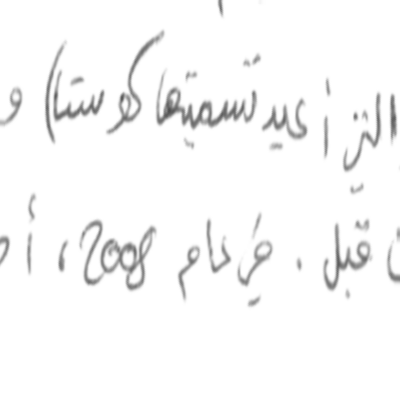 التي أعيد تسميتها كوستا) و
قبل. في عام 2008،